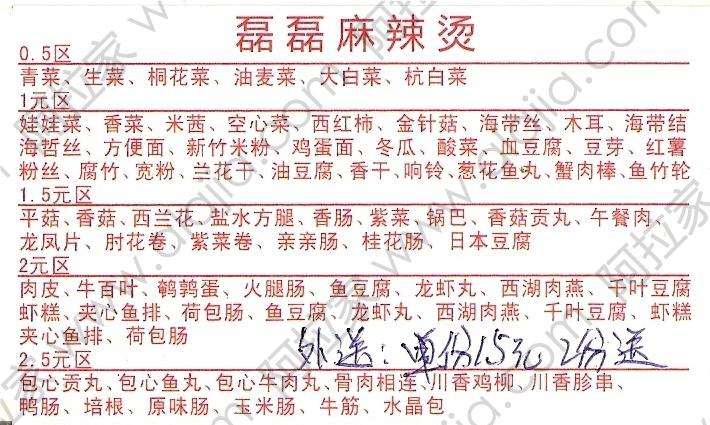 磊磊麻辣烫
0.5区
青菜、生菜、桐花菜、油麦菜、大白菜、杭白菜
1元区
娃娃菜、香菜、米茜、空心菜、西红柿、金针菇、海带丝、木耳、海带结
海哲丝、方便面、新竹米粉、鸡蛋面、冬瓜、酸菜、血豆腐、豆芽、红薯
粉丝、腐竹、宽粉、兰花干、油豆腐、香干、响铃、葱花鱼丸、蟹肉棒、鱼竹轮
1.5元区
平菇、香菇、西兰花、盐水方腿、香肠、紫菜、锅巴、香菇贡丸、午餐肉、
龙凤片、肘花卷、紫菜卷、亲亲肠、桂花肠、日本豆腐
2元区
肉皮、牛百叶、鹌鹑蛋、火腿肠、鱼豆腐、龙虾丸、西湖肉燕、千叶豆腐
虾糕、夹心鱼排、荷包肠、鱼豆腐、龙虾丸、西湖肉燕、千叶豆腐、虾糕
夹心鱼排、荷包肠
外送：单份15元 2份送
2.5元区
包心贡丸、包心鱼丸、包心牛肉丸、骨肉相连、川香鸡柳、川香胗串、
鸭肠、培根、原味肠、玉米肠、牛筋、水晶包
阿拉家 www.alajia.com